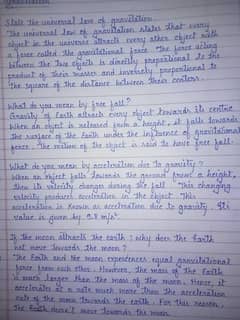 Gravitation
State the universal law of gravitation
The universal law of gravitation states that every
object in the universe attracts every other object with
a force called the gravitational force. The force acting
between the two objects is directly proportional to the
product of their masses and inversely proportional to
the square of the distance between their centers.
What do you mean by free fall?
Gravity of Earth attracts every object towards its centre.
When an object is released from a height, it falls towards
the surface of the Earth under the influence of gravitational
force. The motion of the object is said to have free fall.
What do you mean by acceleration due to gravity?
When an object falls towards the ground from a height,
then its velocity changes during the fall. This changing
velocity produces acceleration in the object. This
acceleration is known as acceleration due to gravity. Its
value is given by 9.8 m/s².
If the moon attracts the earth, why does the Earth
not move towards the moon?
The Earth and the moon experiences equal gravitational
force from each other. However, the mass of the Earth
is much larger than the mass of the moon. Hence, it
accelerates at a rate much more than the acceleration
rate of the moon towards the Earth. For this reason,
the Earth doesn't move towards the moon.